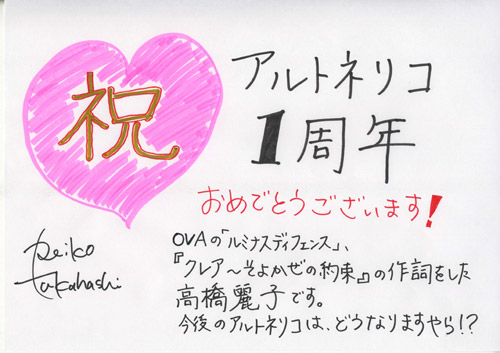 祝
アルトネリコ
1周年
おめでとうございます!
Reiko
Takahashi
OVAの「ルミナスディフェンス」、
『クレア～そよかぜの約束』の作詞をした
高橋麗子です。
今後のアルトネリコは、どうなりますやら!?